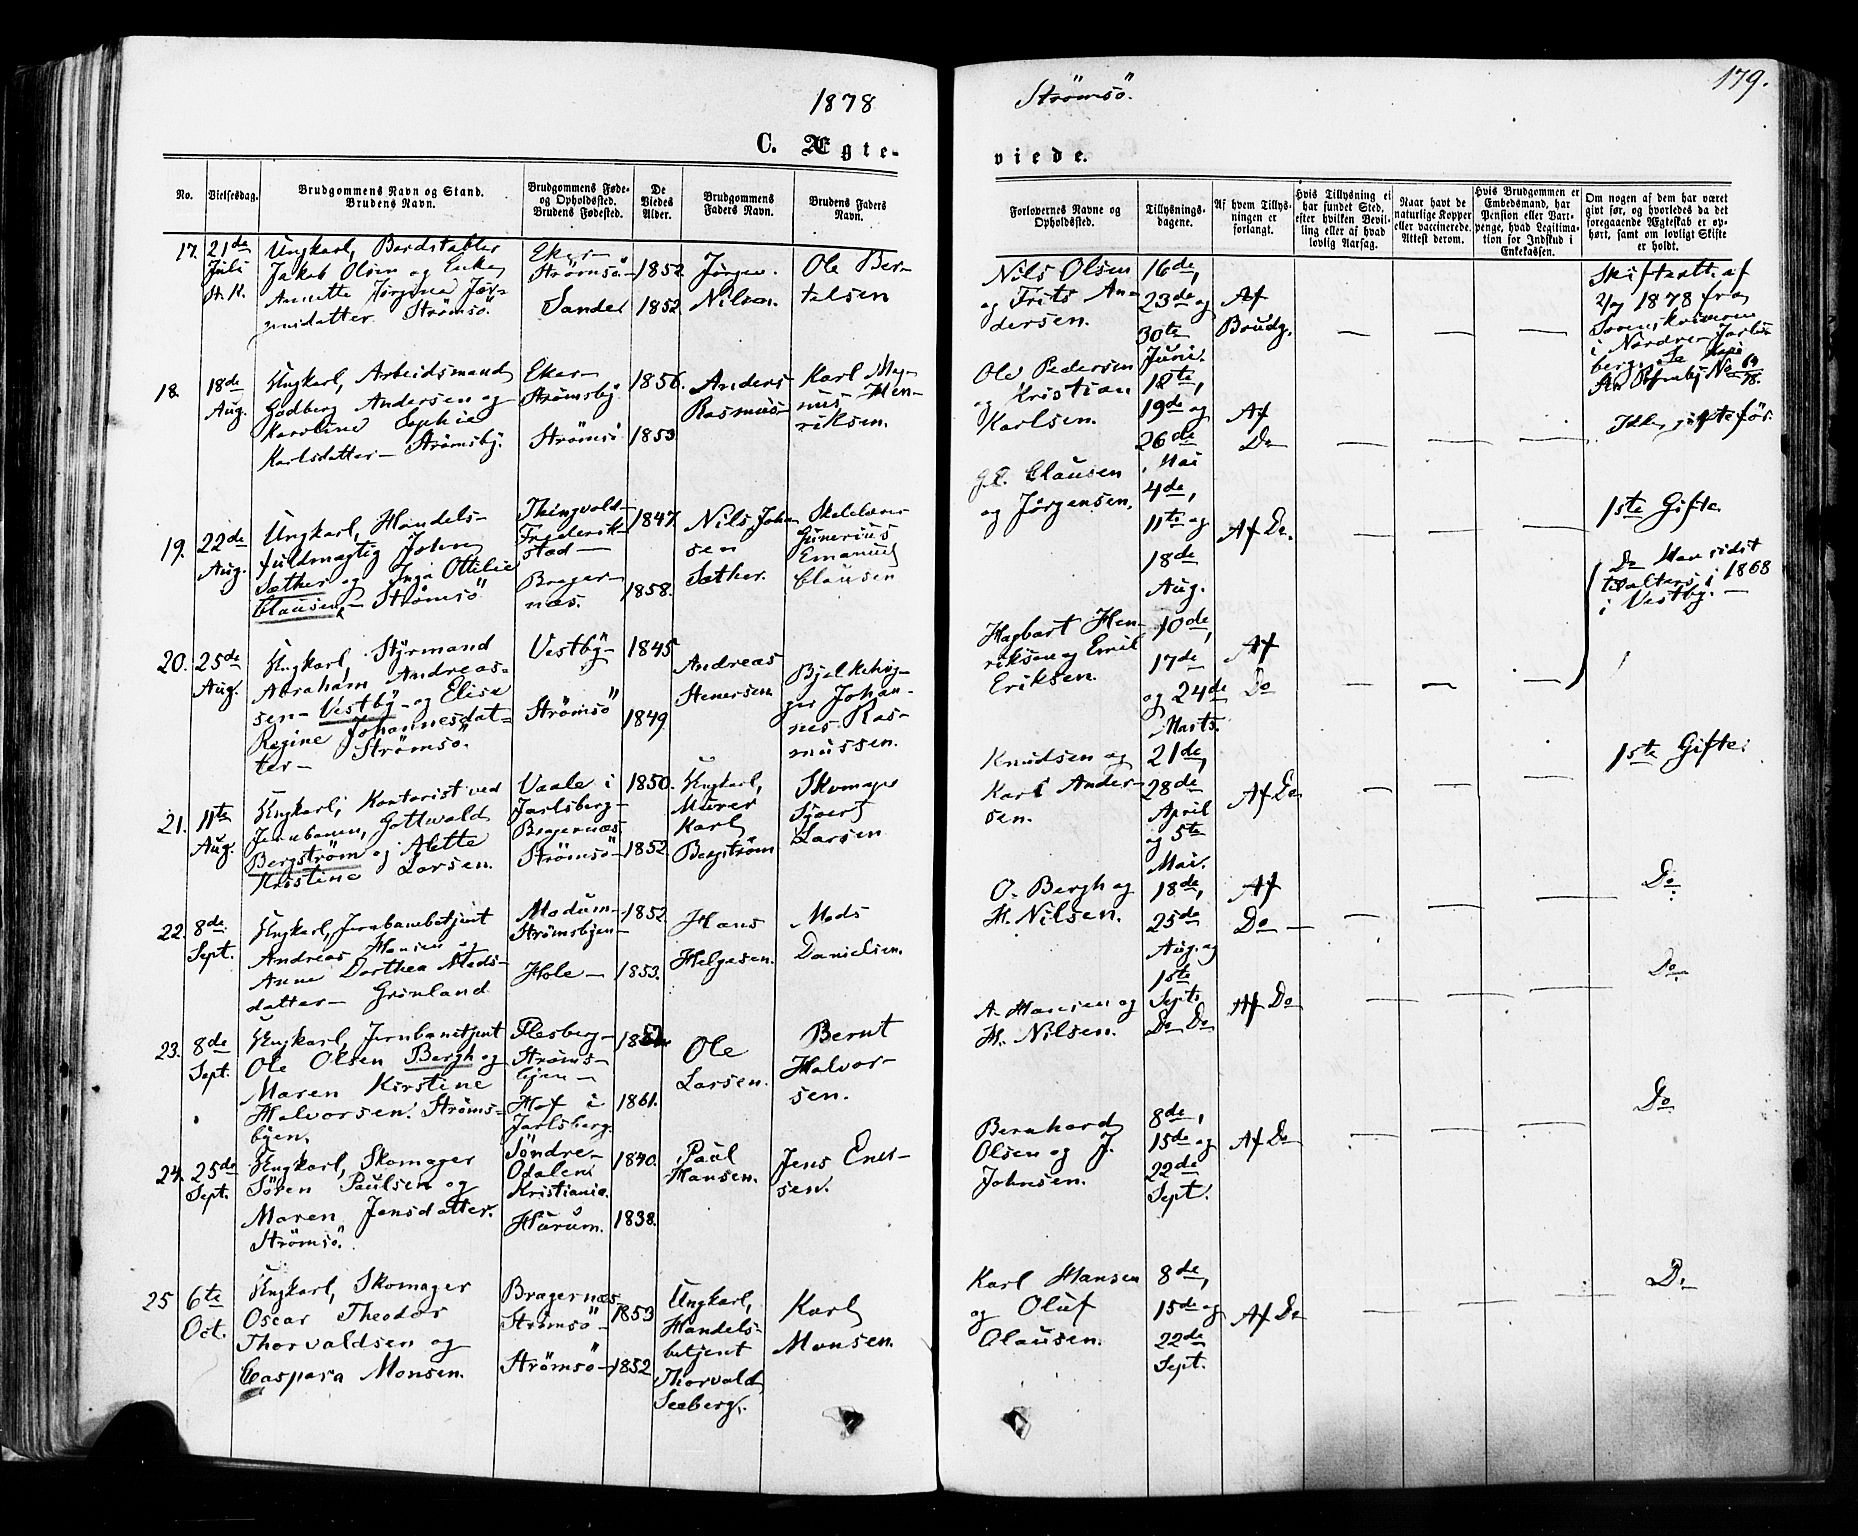 1878
C. Ægte-
No.
Vielsesdag.
Brudgommens Navn og Stand.
Brudens Navn.
Brudgommens Føde-
og Opholdssted.
Brudens Fødested.
De
Viedes
Alder.
Brudgommens
Faders Navn.
Brudens Faders
Navn.
17.
21de
Juli
Ungkarl, Bordstabler
Jakob Olsen og Enke
Annette Jörgine Jör-
Strömsö.
Eker
Strömsö
Sande
1852
1852
Jörgen
Nilsen
Ole Ber-
telsen
18.
18de
Aug.
Ungkarl, Arbeidsmand
Godberg Andersen og
Karoline Sophie
Karlsdatter - Strömsby.
Eker
Strömsby
Strömsö
1856.
1853
Anders
Rasmus-
Karl Mag-
nus Hen-
riksen.
19.
22de
Aug.
Ungkarl, Handels-
fuldmægtig John
Sæther og Inga Ottilie
Clausen - Strömsö
Thingvold-
Frederik-
stad -
Brager-
næs.
1847.
1858.
Nils Johan-
sen
Sæther.
Gunerius
Emanuel
Clausen
20.
25de
Aug.
Ungkarl, Styrmand
Abraham Andreas-
sen - Vestby - og Elise
Regine Johannesdat-
ter - Strömsö.
Vestby -
Strömsö
1845
1849.
Andreas
Stenersen
Bjelkehug-
ger Johan-
nes Ras-
mussen.
21.
11te
Aug.
Ungkarl, Kontorist ved
Jernbanen, Gottwald
Bergström og Alette
Kristine Larsen.
Vaale i
Jarlsberg -
Bragernæs
Strömsö -
1850.
1852.
Ungkarl,
Murer
Karl
Bergström
Skomager
Syvert
Larsen
22.
8de
Sept.
Ungkarl, Jernbanebetjent
Andreas Hansen og
Anne Dorthea Mads-
datter - Grönland
Modum -
Strömsbyen -
Hole -
1852.
1853.
Hans
Helgesen.
Mads
Danielsen.
23.
8de
Sept.
Ungkarl, Jernbanetjent
Ole Olsen Bergh og
Maren Kirstine
Halvorsen. Ströms-
byen.
Flesberg -
Ströms-
byen -
Hof i
Jarlsberg
1861.
Ole
Larsen.
Bernt
Halvor-
sen.
24.
25de
Sept.
Ungkarl, Skomager
Sören Paulsen og
Maren Jensdatter.
Strömsö.
Söndre-
Odalen i
Kristiania.
Hurum.
1840.
1838.
Paul
Hansen.
Jens Ener-
sen.
25
6te
Oct.
Ungkarl, Skomager
Oscar Theodor
Thorvaldsen og
Caspara Monsen.
Bragernæs
Strömsö -
Strömsö -
1853
1852
Ungkarl,
Handels-
betjent
Thorvald
Seeberg.
Karl
Monsen.
Strömsö.
179.
viede.
Forlovernes Navne og
Opholdssted.
Tillysnings-
dagene.
Af hvem Tillys-
ningen er
forlangt.
Hvis Tillysning ei
har fundet Sted,
efter hvilken Bevil-
ling eller af hvad
lovlig Aarsag.
Naar havt de
naturlige Kopper
eller vaccinerede.
Attest derom.
Hvis Brudgommen er
Embedsmand, har
Pension eller Vart-
penge, hvad Legitima-
tion for Indskud i
Enkekassen.
Om nogen af dem har været
gift før, og hvorledes da det
foregaaende Ægteskab er op-
hørt, samt om lovligt Skifte
er holdt.
Nils Olsen
og Frits An-
dersen.
16de,
23de og
30te
Juni.
Af
Brudg.
— — —
Skifteatt. af
1878 fra
i Nordre Jarls-
berg.
Ole Pedersen
og Kristian
Karlsen.
12te,
19de og
26de
Mai
Af
Do
— — —
Ikke gifte för.
Clausen
og Jörgensen.
4de,
11te og
18de
Aug.
Af Do.
— — —
1ste Gifte
Hagbart Hen-
riksen og Emil
Eriksen.
10de,
17de
og 24de
Marts.
Af
Do
— — —
Do Han sidst
til alters i 1868
i Vestby. —
Knudsen og
Karl Ander-
sen.
21de,
28de
April
og 5te
Mai.
Af Do
— — —
1ste Gifte.
O. Bergh og
H. Nilsen.
18de,
25de
Aug. og
1ste
Sept.
Af
Do —
— — —
Do.
A. Hansen og
H. Nilsen.
Do Do
Af Do
— — —
Do.
Bernhard
Olsen og J.
Johnsen.
8de,
15de og
22de
Sept.
Af Do
— — —
Do
Karl Hansen
og Oluf
Clausen.
8de,
15de og
22de
Sept.
Af Do
— — —
Do